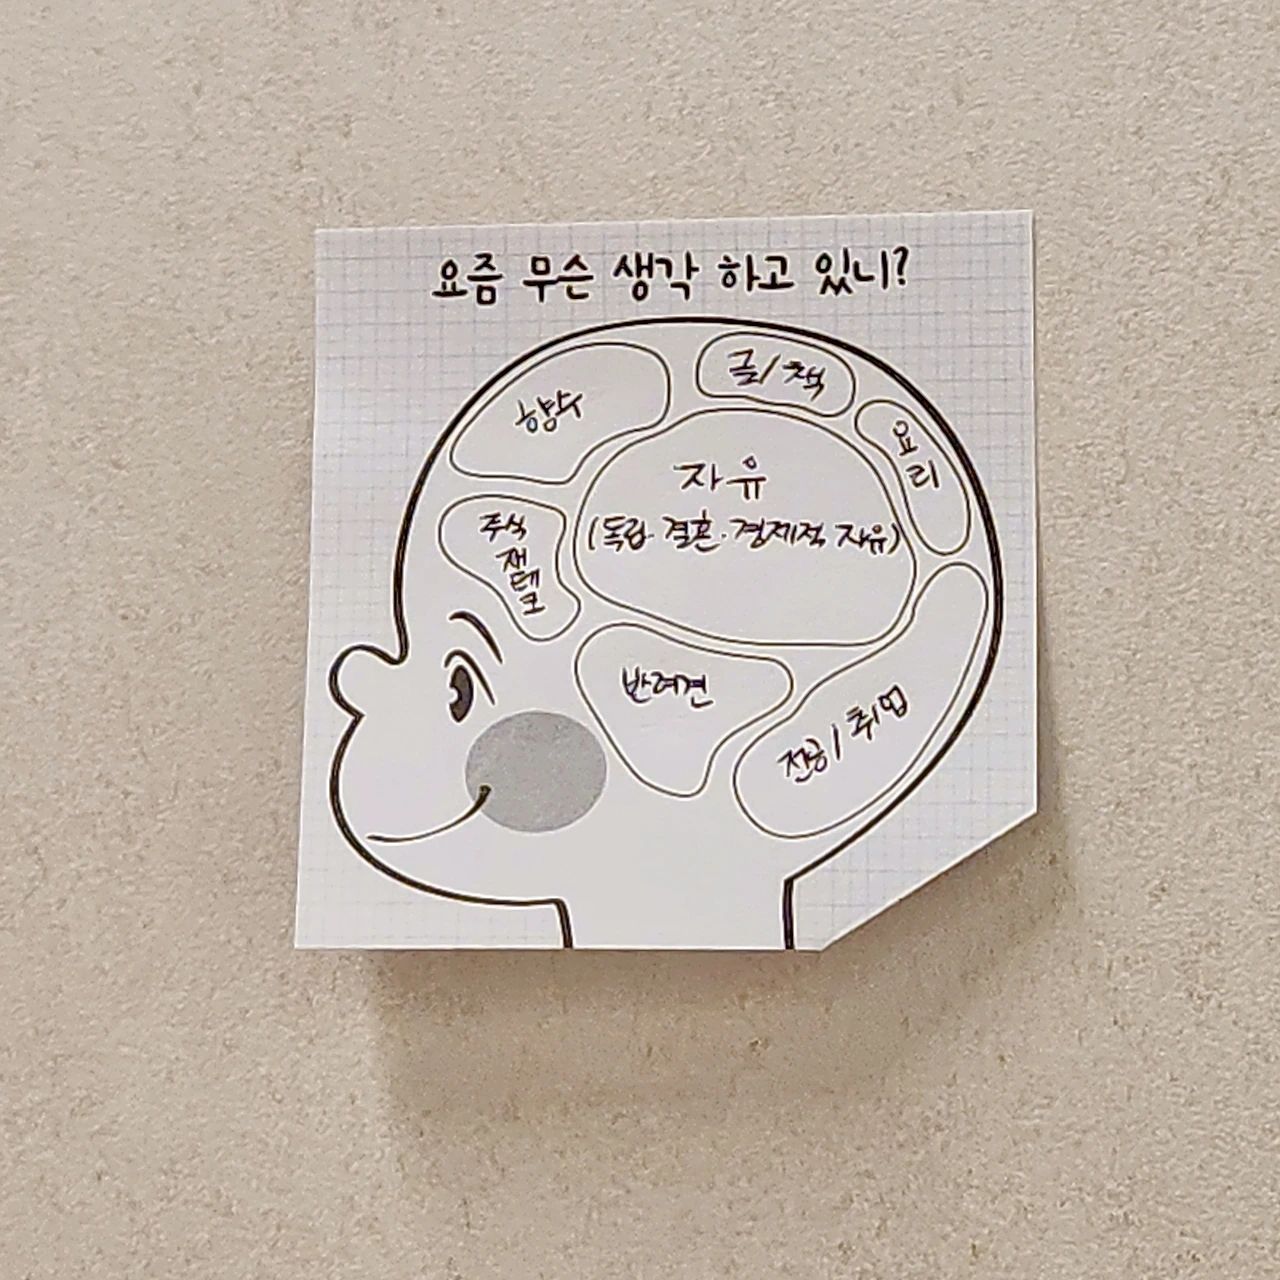 요즘 무슨 생각 하고 있니?
향수
글/책
요리
자유
(독립·결혼·경제적 자유)
주식
재
테
크
반려견
전공/취업